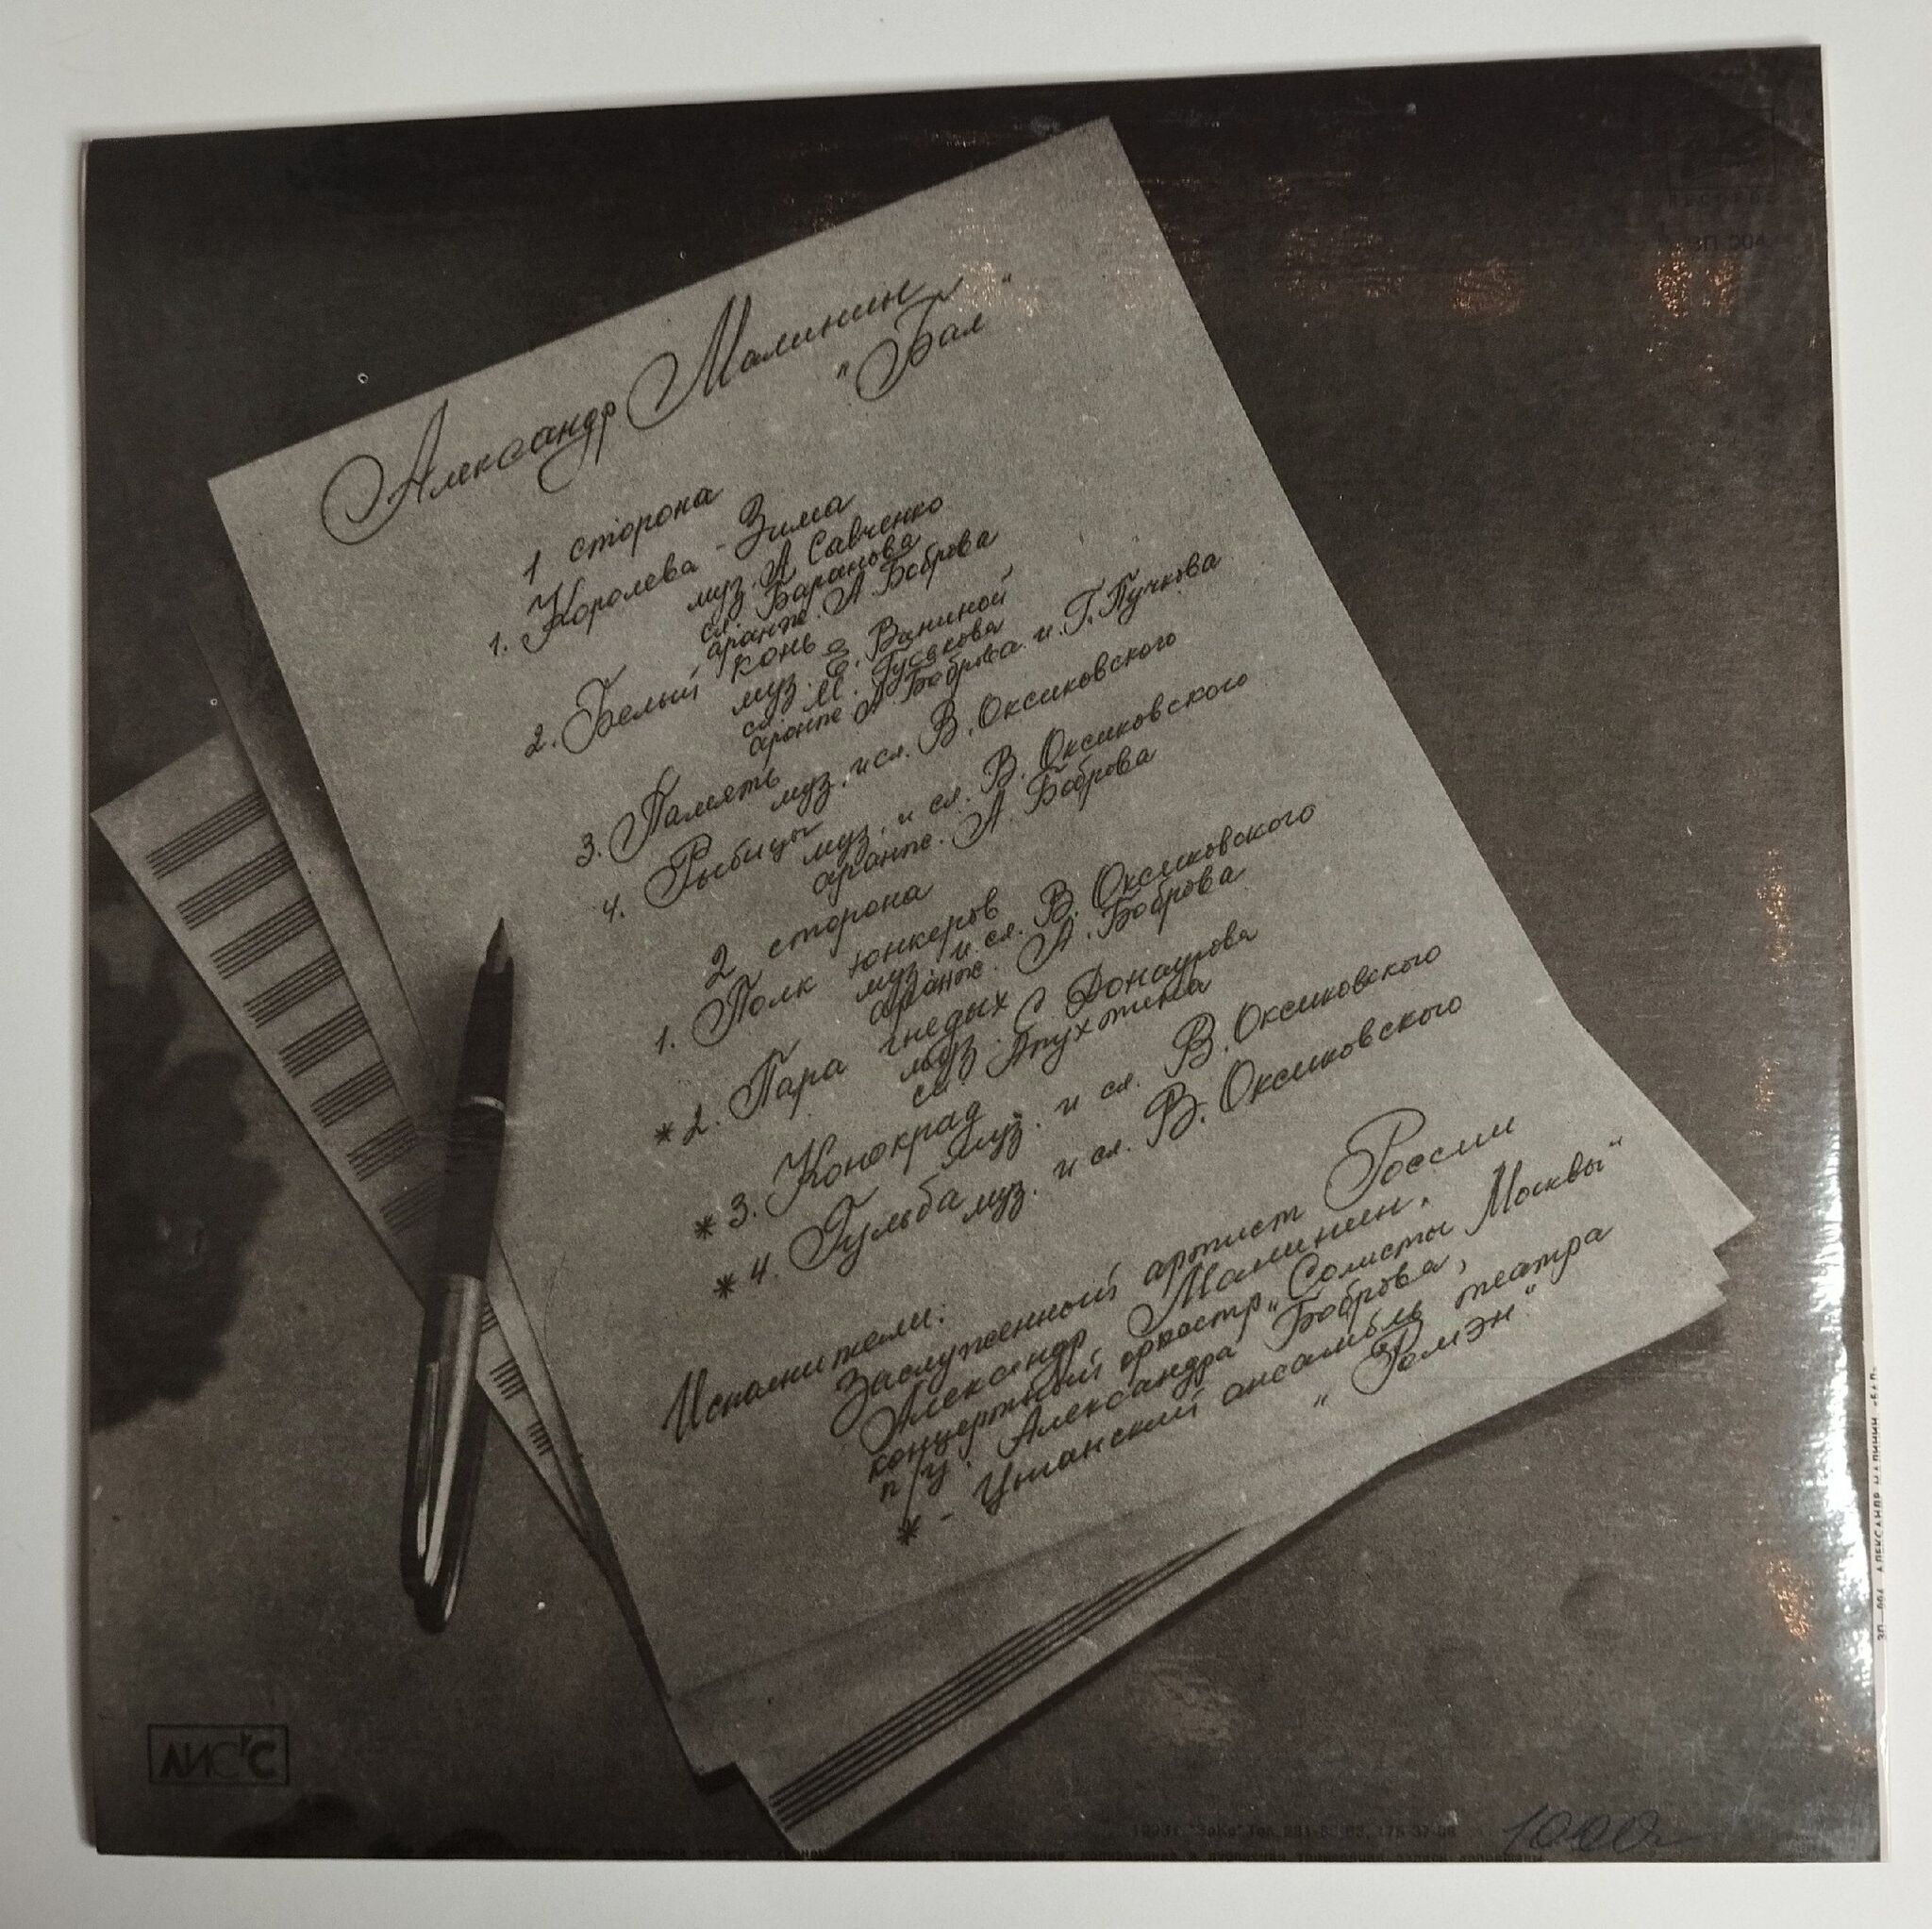 Александр Малинин
"Бал"
1 сторона
1. Королева - Зима
муз. А. Савченко
сл. Баранова
аранж. А. Боброва
2. Белый конь
муз. Е. Ваниной
сл. М. Гуськова
аранж А. Боброва и Г. Пучкова
3. Память
муз. и сл. В. Оксиковского
4. Рыбицы
муз. и сл. В. Оксиковского
аранж. А. Боброва
2 сторона
1. Полк юнкеров
муз. и сл. В. Оксиковского
аранж. А. Боброва
* 2. Пара гнедых
муз. С. Донаурова
сл. Апухтина
* 3. Конокрад
муз. и сл. В. Оксиковского
* 4. Гульба
муз. и сл. В. Оксиковского
Исполнители:
Заслуженный артист России
Александр Малинин,
концертный оркестр "Солисты Москвы"
п/у Александра Боброва,
* - Цыганский ансамбль театра
"Ромэн"
ЛИС'С
1000
АЛЕКСАНДР МАЛИНИН «БАЛ»